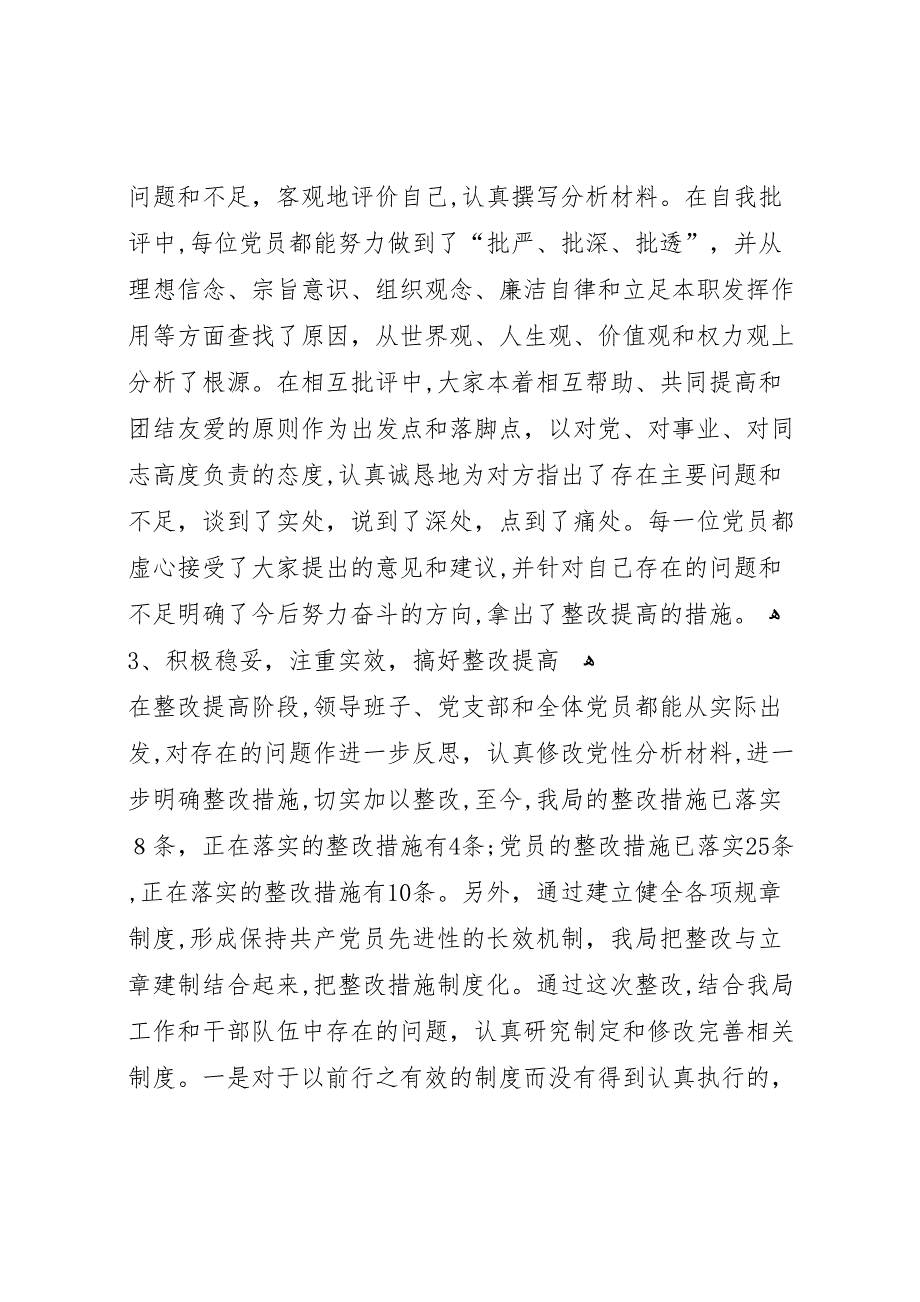 问题和不足，客观地评价自己,认真撰写分析材料。在自我批
评中,每位党员都能努力做到了“批严、批深、批透”，并从
理想信念、宗旨意识、组织观念、廉洁自律和立足本职发挥作
用等方面查找了原因，从世界观、人生观、价值观和权力观上
分析了根源。在相互批评中,大家本着相互帮助、共同提高和
团结友爱的原则作为出发点和落脚点，以对党、对事业、对同
志高度负责的态度,认真诚恳地为对方指出了存在主要问题和
不足，谈到了实处，说到了深处，点到了痛处。每一位党员都
虚心接受了大家提出的意见和建议,并针对自己存在的问题和
不足明确了今后努力奋斗的方向,拿出了整改提高的措施。 ﻫ
3、积极稳妥，注重实效，搞好整改提高 ﻫ
在整改提高阶段,领导班子、党支部和全体党员都能从实际出
发,对存在的问题作进一步反思，认真修改党性分析材料,进一
步明确整改措施,切实加以整改,至今,我局的整改措施已落实
８条，正在落实的整改措施有4条;党员的整改措施已落实25条
,正在落实的整改措施有10条。另外，通过建立健全各项规章
制度,形成保持共产党员先进性的长效机制，我局把整改与立
章建制结合起来,把整改措施制度化。通过这次整改,结合我局
工作和干部队伍中存在的问题，认真研究制定和修改完善相关
制度。一是对于以前行之有效的制度而没有得到认真执行的，